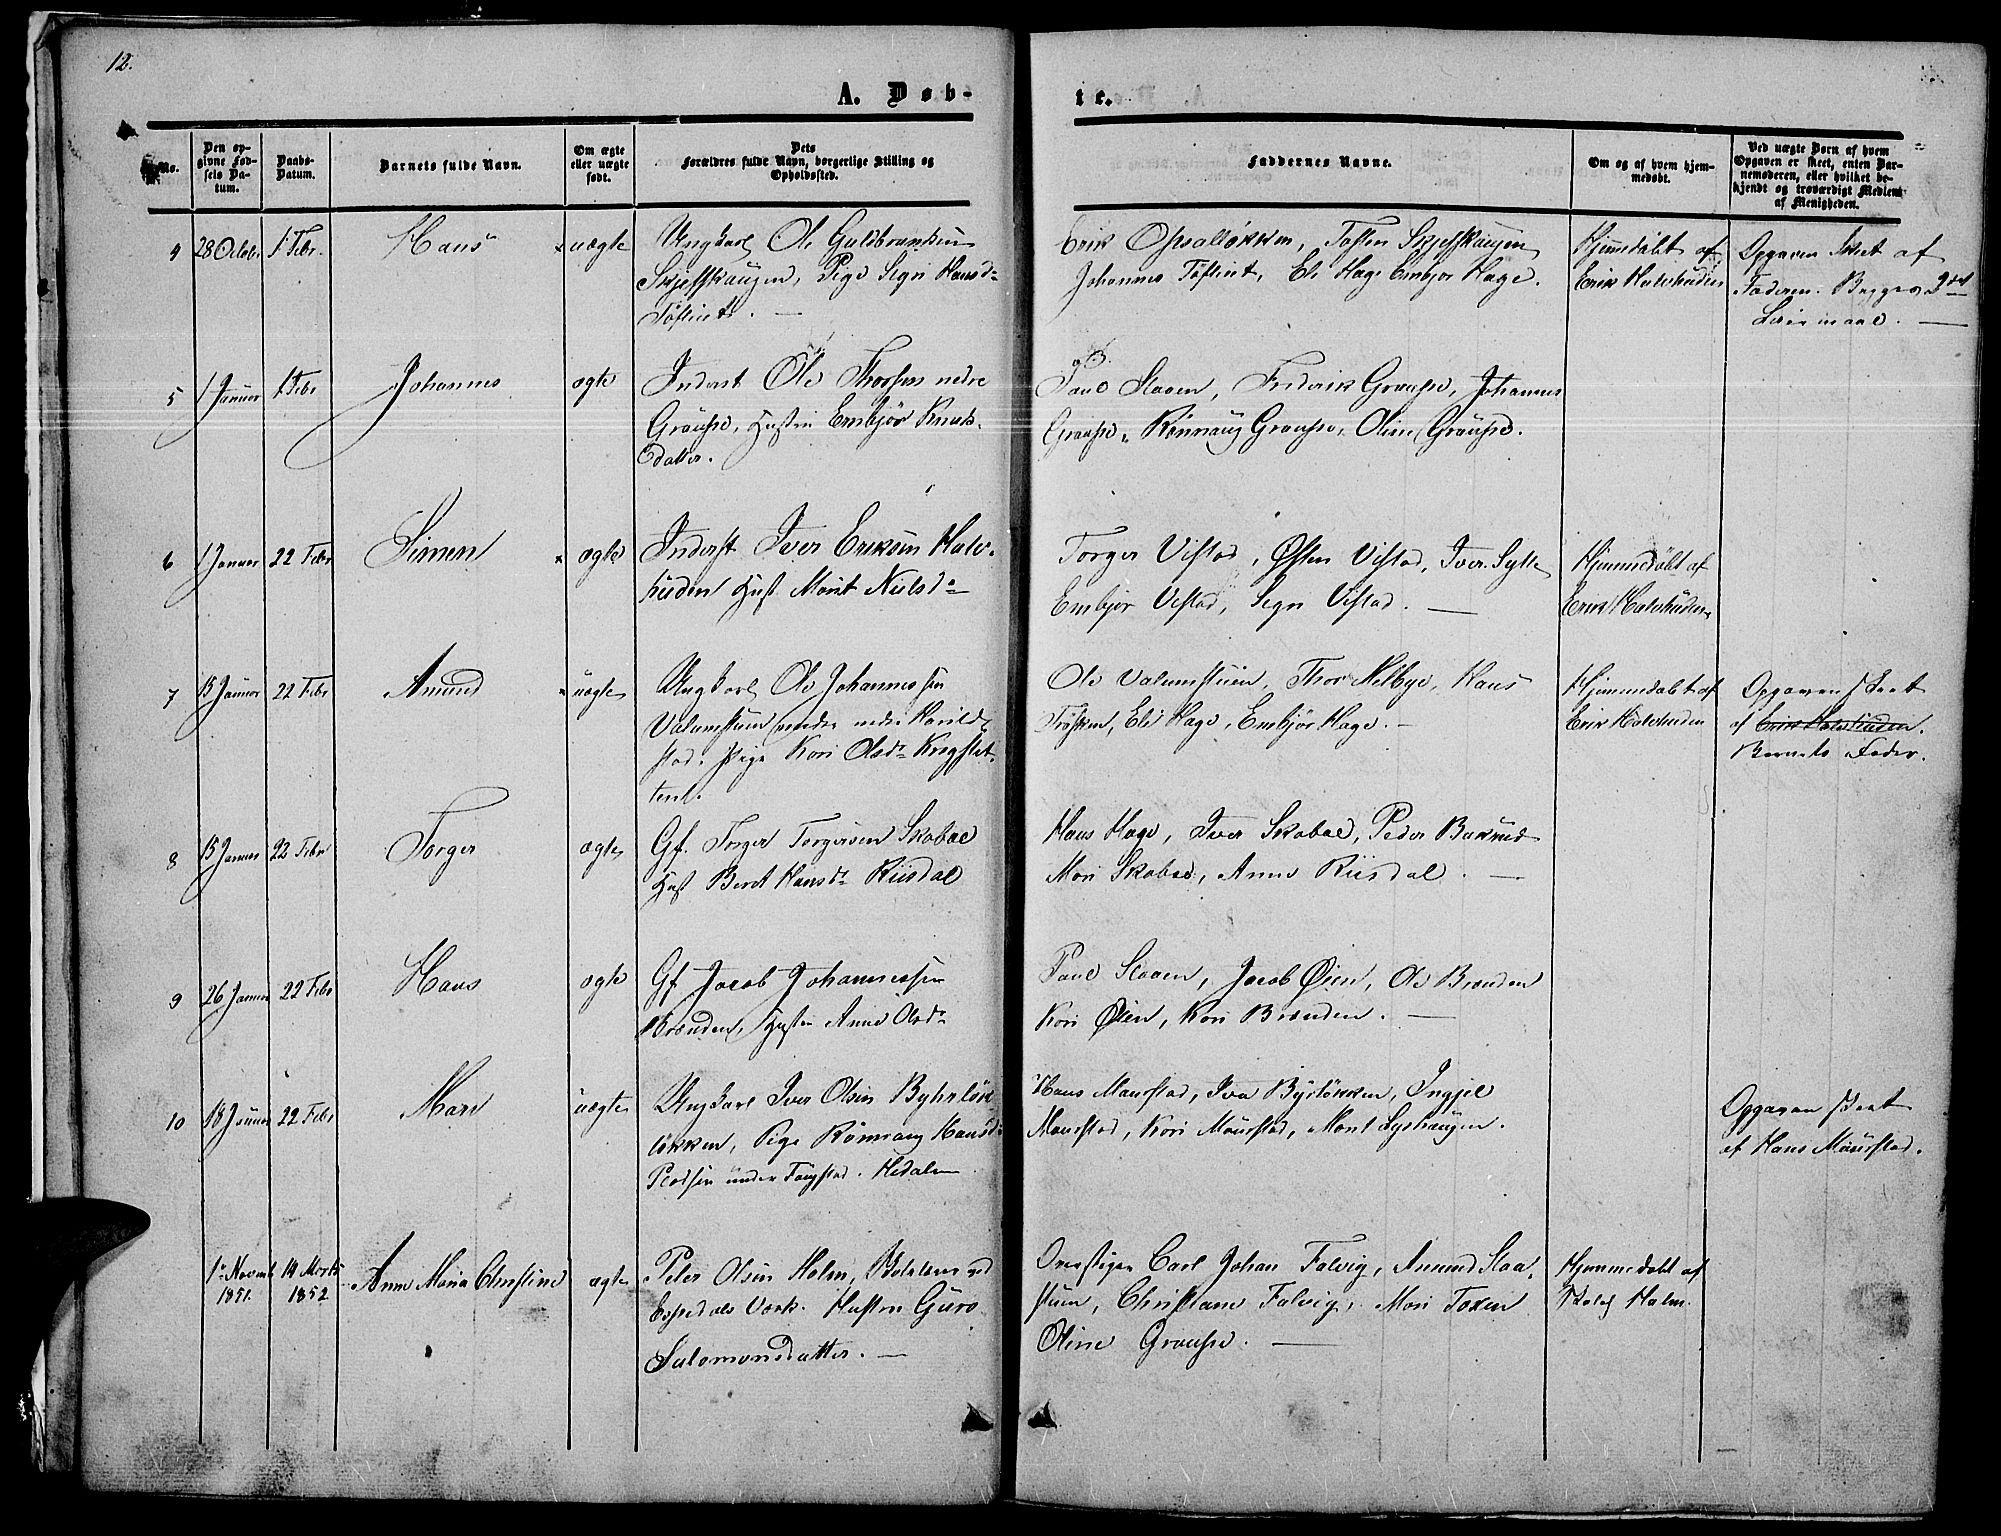 12.
A. Døb-
te.
No.
Den op-
givne Fød-
sels Da-
tum.
Daabs-
Datum.
Barnets fulde Navn.
Om ægte
eller uægte
født.
Dets
Forældres fulde Navn, borgerlige Stilling og
Opholdssted.
Faddernes Navne.
Om og af hvem hjem-
medøbt.
Ved uægte Børn af hvem
Opgaven er skeet, enten Bar-
nemoderen, eller hvilket be-
kjendt og troværdigt Medlem
af Menigheden.
4 28 Octobr 1 Febr. Hans uægte Ungkarl Ole Guldbrandsen
Skjefshaugen, Pige Segn Hansd.
Tøftint.
Erik Opsalløkken, Tosten Skjefshaugen
Johannes Tøftint, Eli Hage Embjør Hage.
Hjemmedøbt af
Erik Halvhuden
Opgaven skeet af
Faderen. Begges 2det
Leiermaal.
5 1 Januar 1 Febr Johannes ægte Inderst Ole Thorsen nedre
Graupe, Hustru Embjør Knuds-
datter.
Paul Slaaen, Frederik Graupe, Johannes
Graupe, Rønnaug Graupe, Oline Graupe.
6 1 Januar 22 Febr Simen ægte Inderst Iver Eriksen Halv-
huden Hust Marit Nielsd.
Torger Vistad, Østen Vistad, Iver Sylte
Embjør Vistad, Segn Vistad.
Hjemmedøbt af
Erik Halvhuden
7 15 Januar 22 Febr Amund uægte Ungkarl Ole Johannessen
Valumstuen nedre Harild-
stad, Pige Kari Olsd.
Ole Valumstuen, Thor Melbye, Hans
Eli Hage, Embjør Hage.
Hjemmedøbt af
Erik Halvhuden
Opgaven skeet
af Erik Halvhuden.
Barnets Fader.
8 15 Januar 22 Febr Torger ægte Gf. Torger Torgersen Skabae
Hust Berit Hansd. Riisdal
Hans Hage, Iver Skabae, Peder Bakrud
Mari Skabae, Anne Riisdal.
9 26 Januar 22 Febr Hans ægte Gf Jacob Johannessen
Brænden, Hustru Anne Olsd.
Paul Slaaen, Jacob Øien, Ole Brænden
Kari Øien, Kari Brænden.
10 18 Januar 22 Febr Mari uægte Ungkarl Iver Olsen
løkken, Pige Rønnaug Hansd.
under Hedalen
Hans Maurstad, Ingjel
Maurstad, Kari Maurstad, Marit
Opgaven skeet
af Hans Maurstad.
1 Novemb
1851.
14 Marts
1852
Anne Maria Christine ægte Peter Olsen Holm, ved
Espedals Værk. Hustru Guro
Salomonsdatter.
Overstiger Carl Johan Falvig, Amund Slaa-
stuen, Christiane Falvig, Mari Toxen
Oline Graupe.
Hjemmedøbt af
Holm.